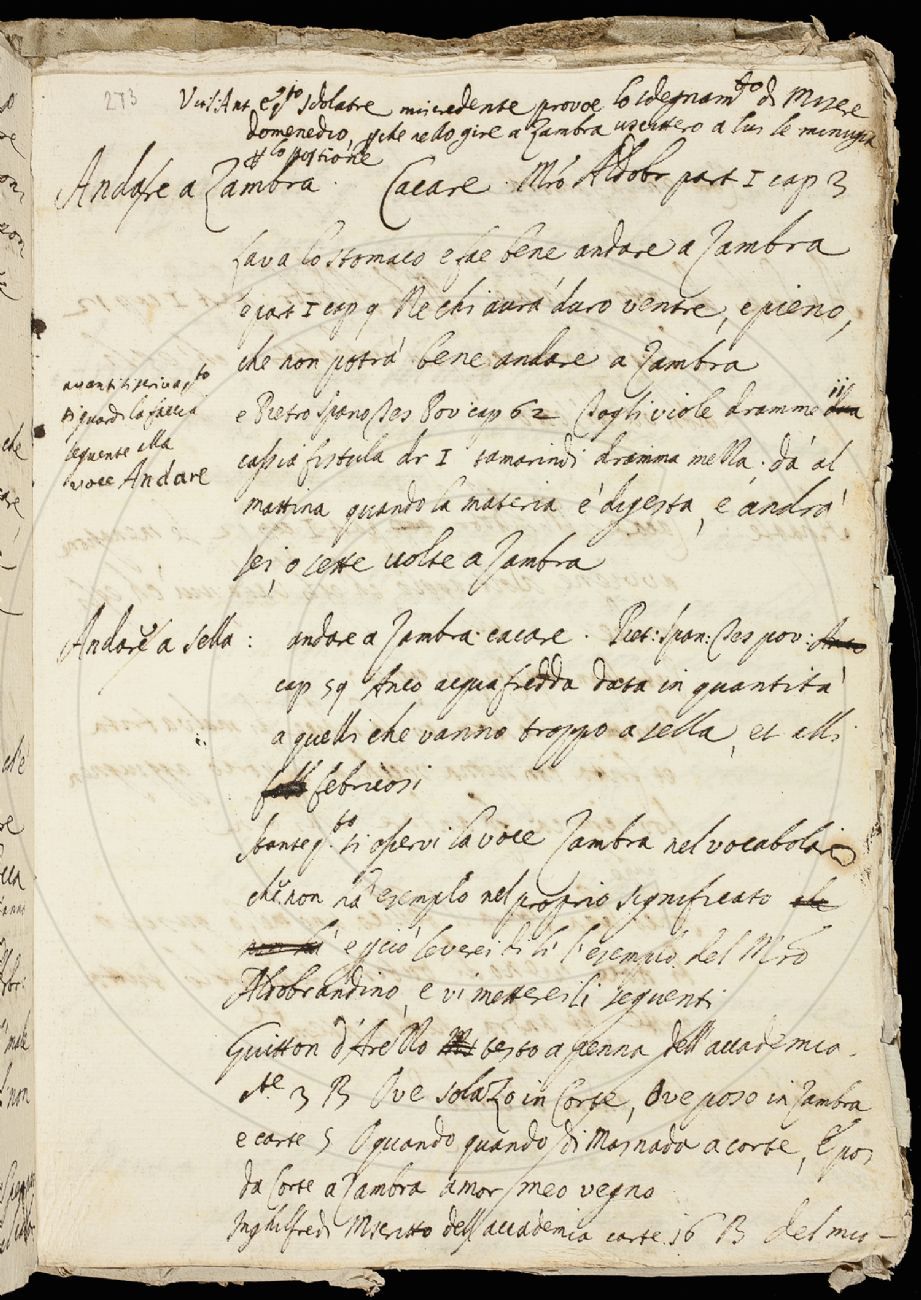 273
Vit: Ant. e q.to Idolatre miscredente provoe lo sdegnam.to di Misere
domenedio, che nello gire a Zambra uscittero a lui le minugia
Andare a Zambra. Cacare. Mrô Aldobr part I cap 3
Lava lo stomaco e fae bene andare a Zambra
e part I cap 9 Ne chi aurà duro ventre, e pieno,
che non potrà bene andare a Zambra
e Pietro Spano Tes Pov cap 62 Togli viole dramme iij
cassia fistula dr I tamarindi dramma mezza. dà al
mattina quando la materia è digesta, e andrò
sei, o sette volte a Zambra
avanti si scriva q.to
si guardi la faccia
seguente alla
voce Andare
Andare a sella: andare a Zambra. cacare. Piet: Span: Tes pov:
cap 59 Anco acqua fredda data in quantità
a quelli che vanno troppo a sella, et alli
febricosi
Stante q.to si osservi la voce Zambra nel vocabolario
che non ha esemplo nel proprio significato
e però leverei di lì l'esemplo del Mrô
Aldobrandino, e vi metterei li seguenti
Guitton d'Arezzo testo a penna dell'accademia.
c.te 3 B Ove solazo in Corte, Ove poso in Zambra
e carte 5 O quando quando di Masnada a corte, E poi
da Corte a Zambra amor meo vegno
Inghilfredi Mscritto dell'accademia carte 16 B del mio